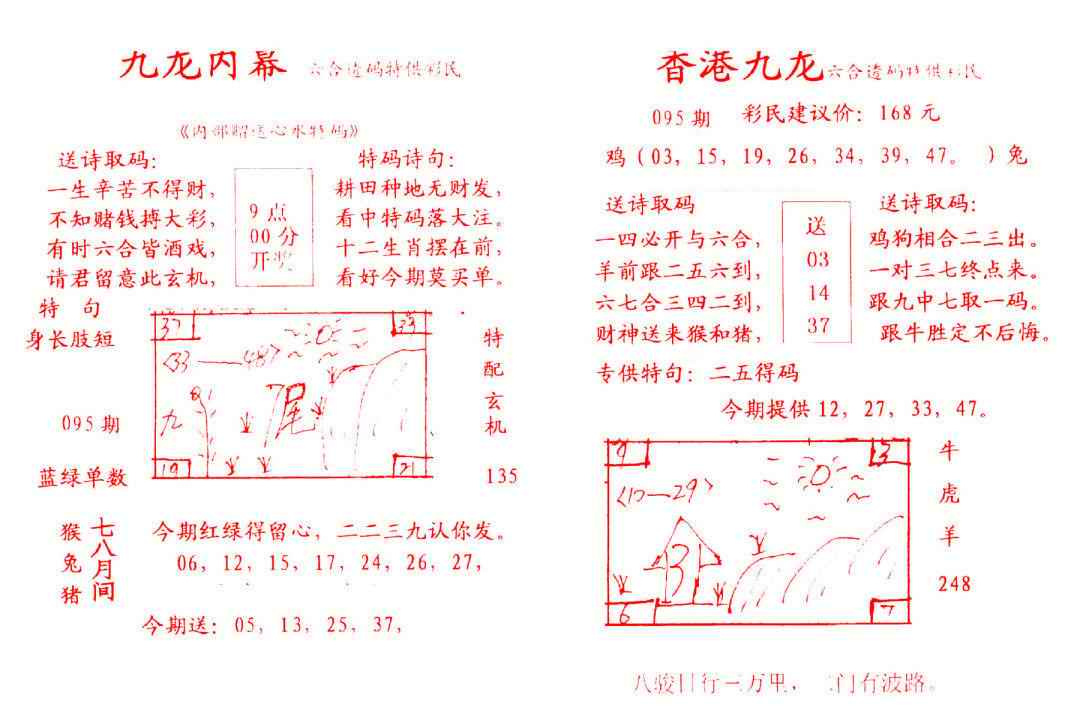 九龙内幕 六合透码特供彩民
送诗取码：
一生辛苦不得财，
不知赌钱搏大彩，
有时六合皆酒戏，
请君留意此玄机，
9 点
00 分
开奖
特码诗句：
耕田种地无财发，
看中特码落大注。
十二生肖摆在前，
看好今期莫买单。
特 句
身长肢短
095 期
蓝绿单数
37
33
<33—48>
九
7尾
19
21
特
配
玄
机
135
猴
兔
猪
七八月间
今期红绿得留心，二二三九认你发。
06，12，15，17，24，26，27，
今期送：05，13，25，37，
香港九龙 六合透码特供彩民
095 期 彩民建议价：168 元
鸡（03，15，19，26，34，39，47。 ）兔
送诗取码
一四必开与六合，
羊前跟二五六到，
六七合三四二到，
财神送来猴和猪，
送
03
14
37
送诗取码：
鸡狗相合二三出。
一对三七终点来。
跟九中七取一码。
跟牛胜定不后悔。
专供特句：二五得码
今期提供 12，27，33，47。
9
3
<17—29>
31
6
7
牛
虎
羊
248
八骏日行三万里，门有波路。